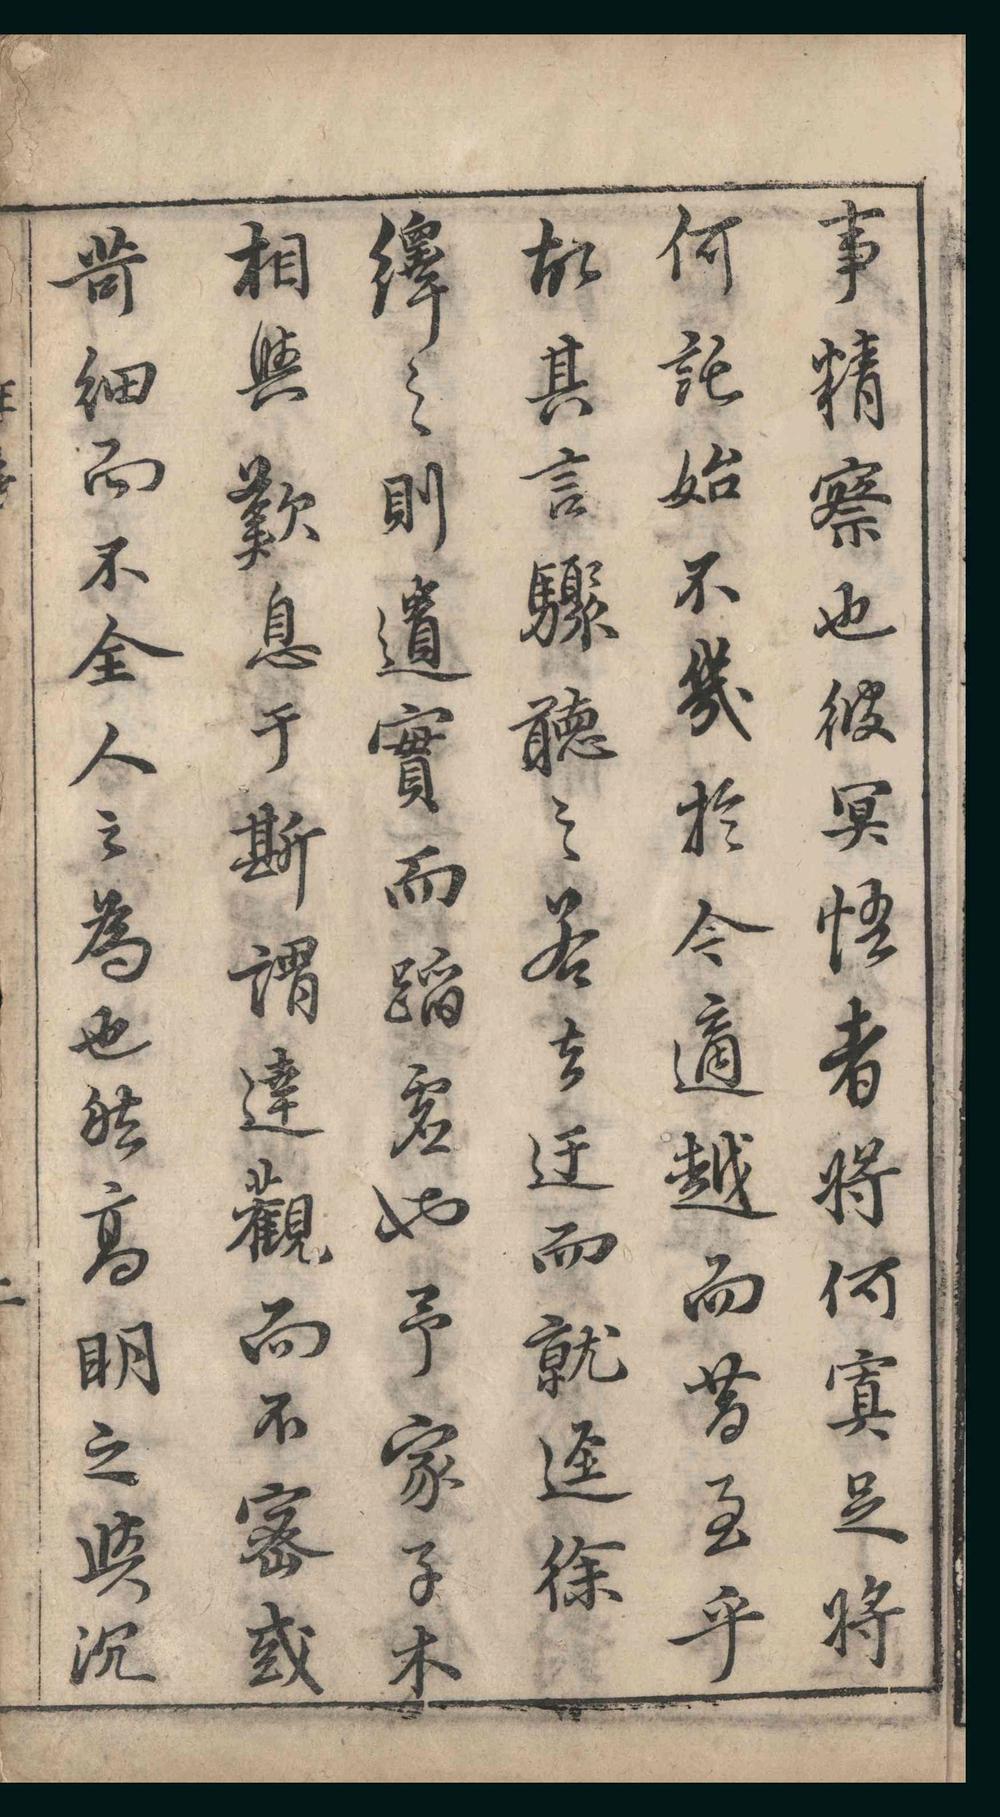 事精察也彼冥悟者將何寘足將
何託始不幾於今適越而昔至乎
故其言驟聽之若去迂而就逕徐
繹之則遺實而蹈虛也予家子木
相與歎息于斯謂達觀而不密或
苛細而不全人之為也然高明之與沉
二